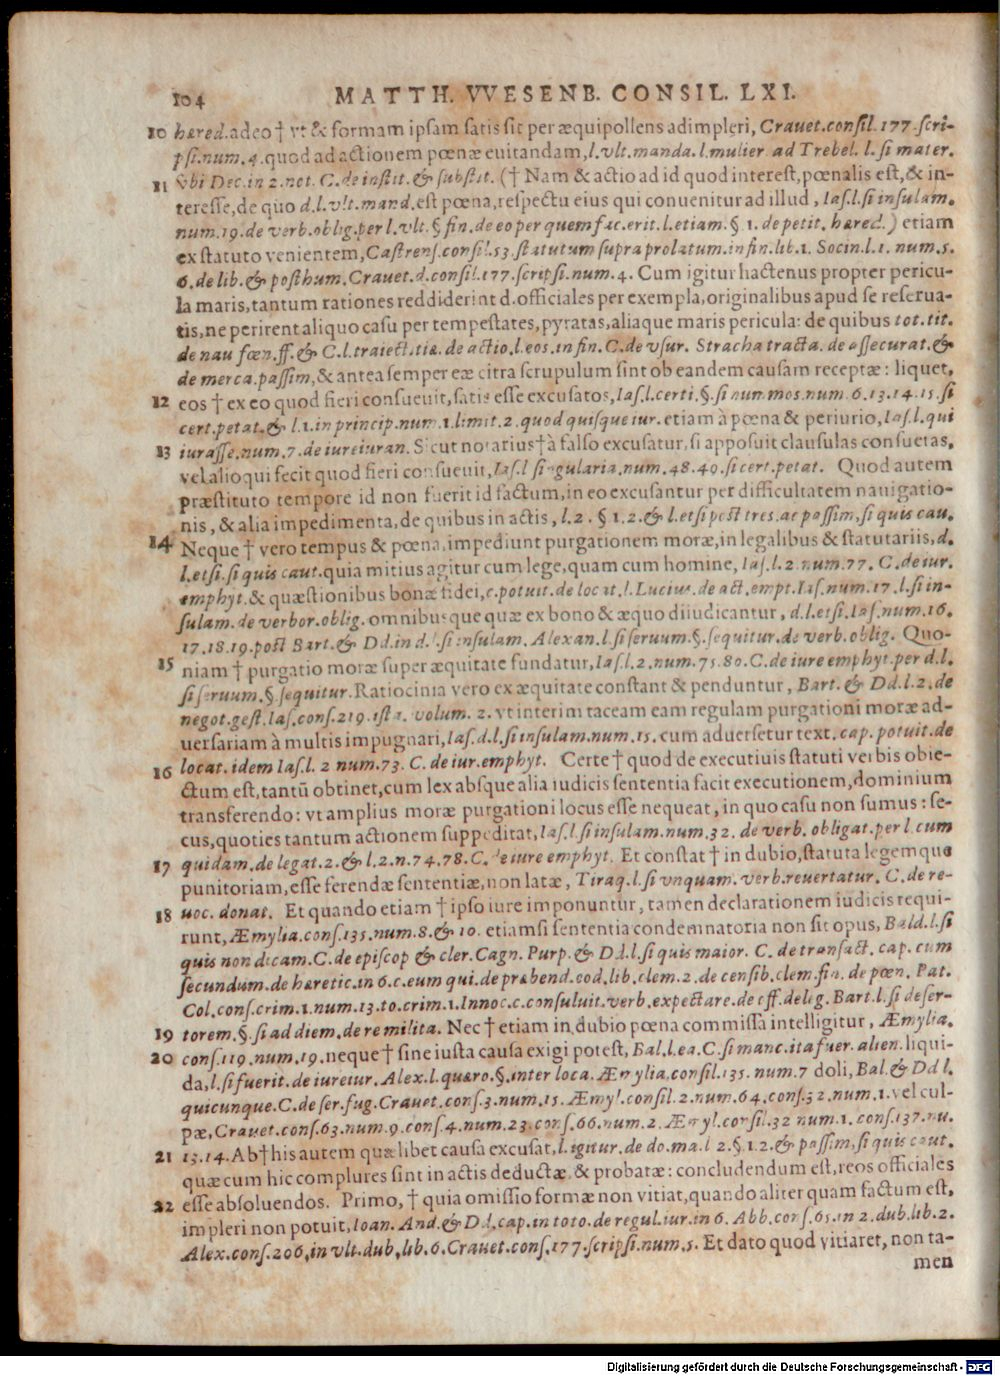 104 MATTH. VVESENB. CONSIL. LXI.
10 hæred. adeo † vt & formam ipsam satis sit per æquipollens adimpleri, Crauet. consil. 177. scri-
psi. num. 4. quod ad actionem pœnæ euitandam, l. vlt. manda. l. mulier ad Trebel. l. si mater.
11 vbi Dec. in 2. not. C. de instit. & substit. († Nam & actio ad id quod interest, pœnalis est, & in-
teresse, de quo d. l. vlt. mand. est pœna, respectu eius qui conuenitur ad illud, Ias. l. si insulam.
num. 19. de verb. oblig. per l. vlt. § fin. de eo per quem fac. erit. l. etiam. § 1. de petit. hæred.) etiam
ex statuto venientem, Castrens. consil. 53. statutum supra prolatum. in fin. lib. 1. Socin. l. 1. num. 5.
6. de lib. & posthum. Crauet. d. consil. 177. scripsi. num. 4. Cum igitur hactenus propter pericu-
la maris, tantum rationes reddiderint d. officiales per exempla, originalibus apud se reserua-
tis, ne perirent aliquo casu per tempestates, pyratas, aliaque maris pericula: de quibus tot. tit.
de nau fœn. ff. & C. l. traiectitia. de actio. l. eos. in fin. C. de vsur. Stracha tracta. de assecurat. &
de merca. passim, & antea semper eæ citra scrupulum sint ob eandem causam receptæ: liquet,
12 eos † ex eo quod fieri consueuit, satis esse excusatos, Ias. l. certi. §. si nummos. num. 6. 13. 14. 15. si
cert. petat. & l. 1. in princip. num. 1. limit. 2. quod quisque iur. etiam à pœna & periurio, Ias. l. qui
13 iurasse. num. 7. de iureiuran. Sicut notarius † à falso excusatur, si apposuit clausulas consuetas.
vel alioqui fecit quod fieri consueuit, Ias. l singularia. num. 48. 49. si cert. petat. Quod autem
præstituto tempore id non fuerit id factum, in eo excusantur per difficultatem nauigatio-
nis, & alia impedimenta, de quibus in actis, l. 2. § 1. 2. & l. etsi post tres. ac passim, si quis cau.
14 Neque † vero tempus & pœna, impediunt purgationem moræ, in legalibus & statutariis, d.
l. etsi. si quis caut. quia mitius agitur cum lege, quam cum homine, Ias. l. 2. num. 77. C. de iur.
emphyt. & quæstionibus bonæ fidei, c. potuit. de locat. l. Lucius. de act. empt. Ias. num. 17. l. si in-
sulam. de verbor. oblig. omnibusque quæ ex bono & æquo diiudicantur, d. l. etsi. Ias. num. 16.
17. 18. 19. post Bart. & Dd. in d. l. si insulam. Alexan. l. si seruum. §. sequitur. de verb. oblig. Quo-
15 niam † purgatio moræ super æquitate fundatur, Ias. l. 2. num. 75. 80. C. de iure emphyt. per d. l.
si seruum. §. sequitur. Ratiocinia vero ex æquitate constant & penduntur, Bart. & Dd. l. 2. de
negot. gest. Ias. cons. 219. ista. volum. 2. vt interim taceam eam regulam purgationi moræ ad-
uersariam à multis impugnari, Ias. d. l. si insulam. num. 15. cum aduersetur text. cap. potuit. de
16 locat. idem Ias. l. 2 num. 73. C. de iur. emphyt. Certe † quod de executiuis statuti verbis obie-
ctum est, tantū obtinet, cum lex absque alia iudicis sententia facit executionem, dominium
transferendo: vt amplius moræ purgationi locus esse nequeat, in quo casu non sumus: se-
cus, quoties tantum actionem suppeditat, Ias. l. si insulam. num. 32. de verb. obligat. per l. cum
17 quidam. de legat. 2. & l. 2. n. 74. 78. C. de iure emphyt. Et constat † in dubio, statuta legemque
punitoriam, esse ferendæ sententiæ, non latæ, Tiraq. l. si vnquam. verb. reuertatur. C. de re-
18 uoc. donat. Et quando etiam † ipso iure imponuntur, tamen declarationem iudicis requi-
runt, Æmylia. cons. 135. num. 8. & 10. etiamsi sententia condemnatoria non sit opus, Bald. l. si
quis non dicam. C. de episcop & cler. Cagn. Purp. & Dd. l. si quis maior. C. de transact. cap. cum
secundum. de hæretic. in 6. c. eum qui. de præbend. eod. lib. clem. 2. de censib. clem. fin. de pœn. Pat.
Col. cons. crim. 1. num. 13. to. crim. 1. Innoc. c. consuluit. verb. expectare. de off. deleg. Bart. l. si deser-
19 torem. §. si ad diem. de re milita. Nec † etiam in dubio pœna commissa intelligitur, Æmylia.
20 cons. 119. num. 19. neque † sine iusta causa exigi potest, Bal. l. ea. C. si manc. ita fuer. alien. liqui-
da, l. si fuerit. de iureiur. Alex. l. quæro. §. inter loca. Æmylia. consil. 135. num. 7 doli, Bal. & Dd l.
quicunque. C. de ser. fug. Crauet. cons. 3. num. 15. Æmyl. consil. 2. num. 64. cons. 32. num. 1. vel cul-
pæ, Crauet. cons. 63. num. 9. cons. 4. num. 23. cons. 66. num. 2. Æmyl. consil. 32 num. 1. cons. 137. nu.
21 13. 14. Ab † his autem quælibet causa excusat, l. igitur. de do. ma. l 2. § 1. 2. & passim, si quis caut.
quæcum hic complures sint in actis deductæ & probatæ: concludendum est, reos officiales
22 esse absoluendos. Primo, † quia omissio formæ non vitiat, quando aliter quam factum est,
impleri non potuit, Ioan. And. & Dd. cap. in toto. de regul. iur. in 6. Abb. cons. 65. in 2. dub. lib. 2.
Alex. cons. 206, in vlt. dub, lib. 6. Crauet. cons. 177. scripsi. num. 5. Et dato quod vitiaret, non ta-
men
Digitalisierung gefördert durch die Deutsche Forschungsgemeinschaft - DFG